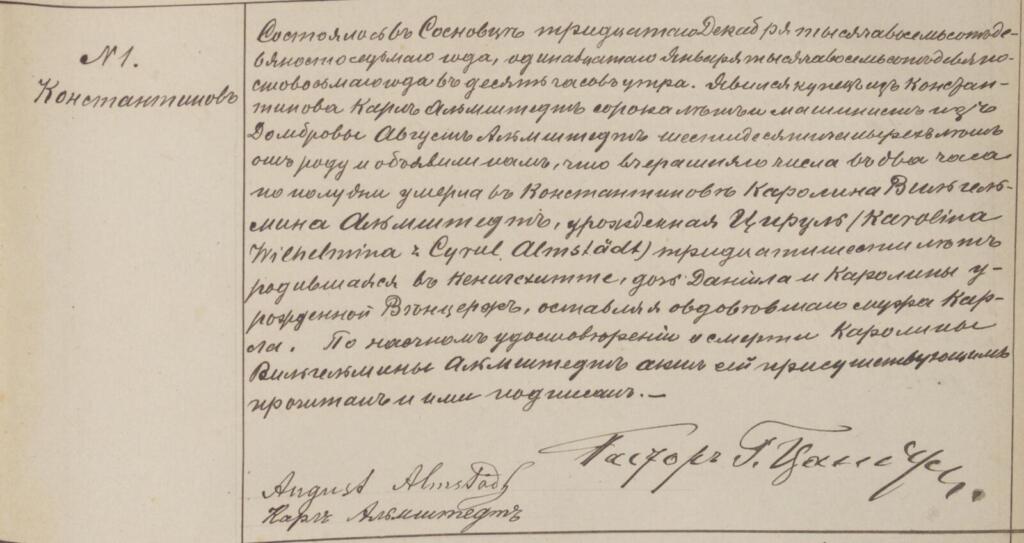 N1.
Константиновъ
Состоялось въ Сосновцѣ тридцатаго Декабря тысяча восемьсотъ де-
вяносто седьмаго года, одинадцатаго Января тысяча восемьсотъ девяно-
сто восьмаго года въ десять часовъ утра. Явился купецъ изъ Констан-
тинова Карлъ Альмштедтъ сорока лѣтъ и машинистъ изъ
Домбровы Августъ Альмштедтъ шестидесяти четырехъ лѣтъ
отъ роду и объявили намъ, что вчерашняго числа въ два часа
по полудни умерла въ Константиновѣ Каролина Вильгель-
мина Альмштедтъ, урожденная Цируль (Karolina
Wilhelmina z Cyrul Almstädt) тридцати шести лѣтъ
родившаяся въ Кенигсхитте, дочь Даніила и Каролины у-
рожденной Вѣнцержъ, оставляя овдовѣвшаго мужа Кар-
ла. По настномъ удостовѣреніи о смерти Каролины
Вильгельмины Альмштедтъ актъ сей присутствующимъ
прочитанъ и ими подписанъ. —
Пасторъ Г.
August Almstädt
Карлъ Альмштедтъ